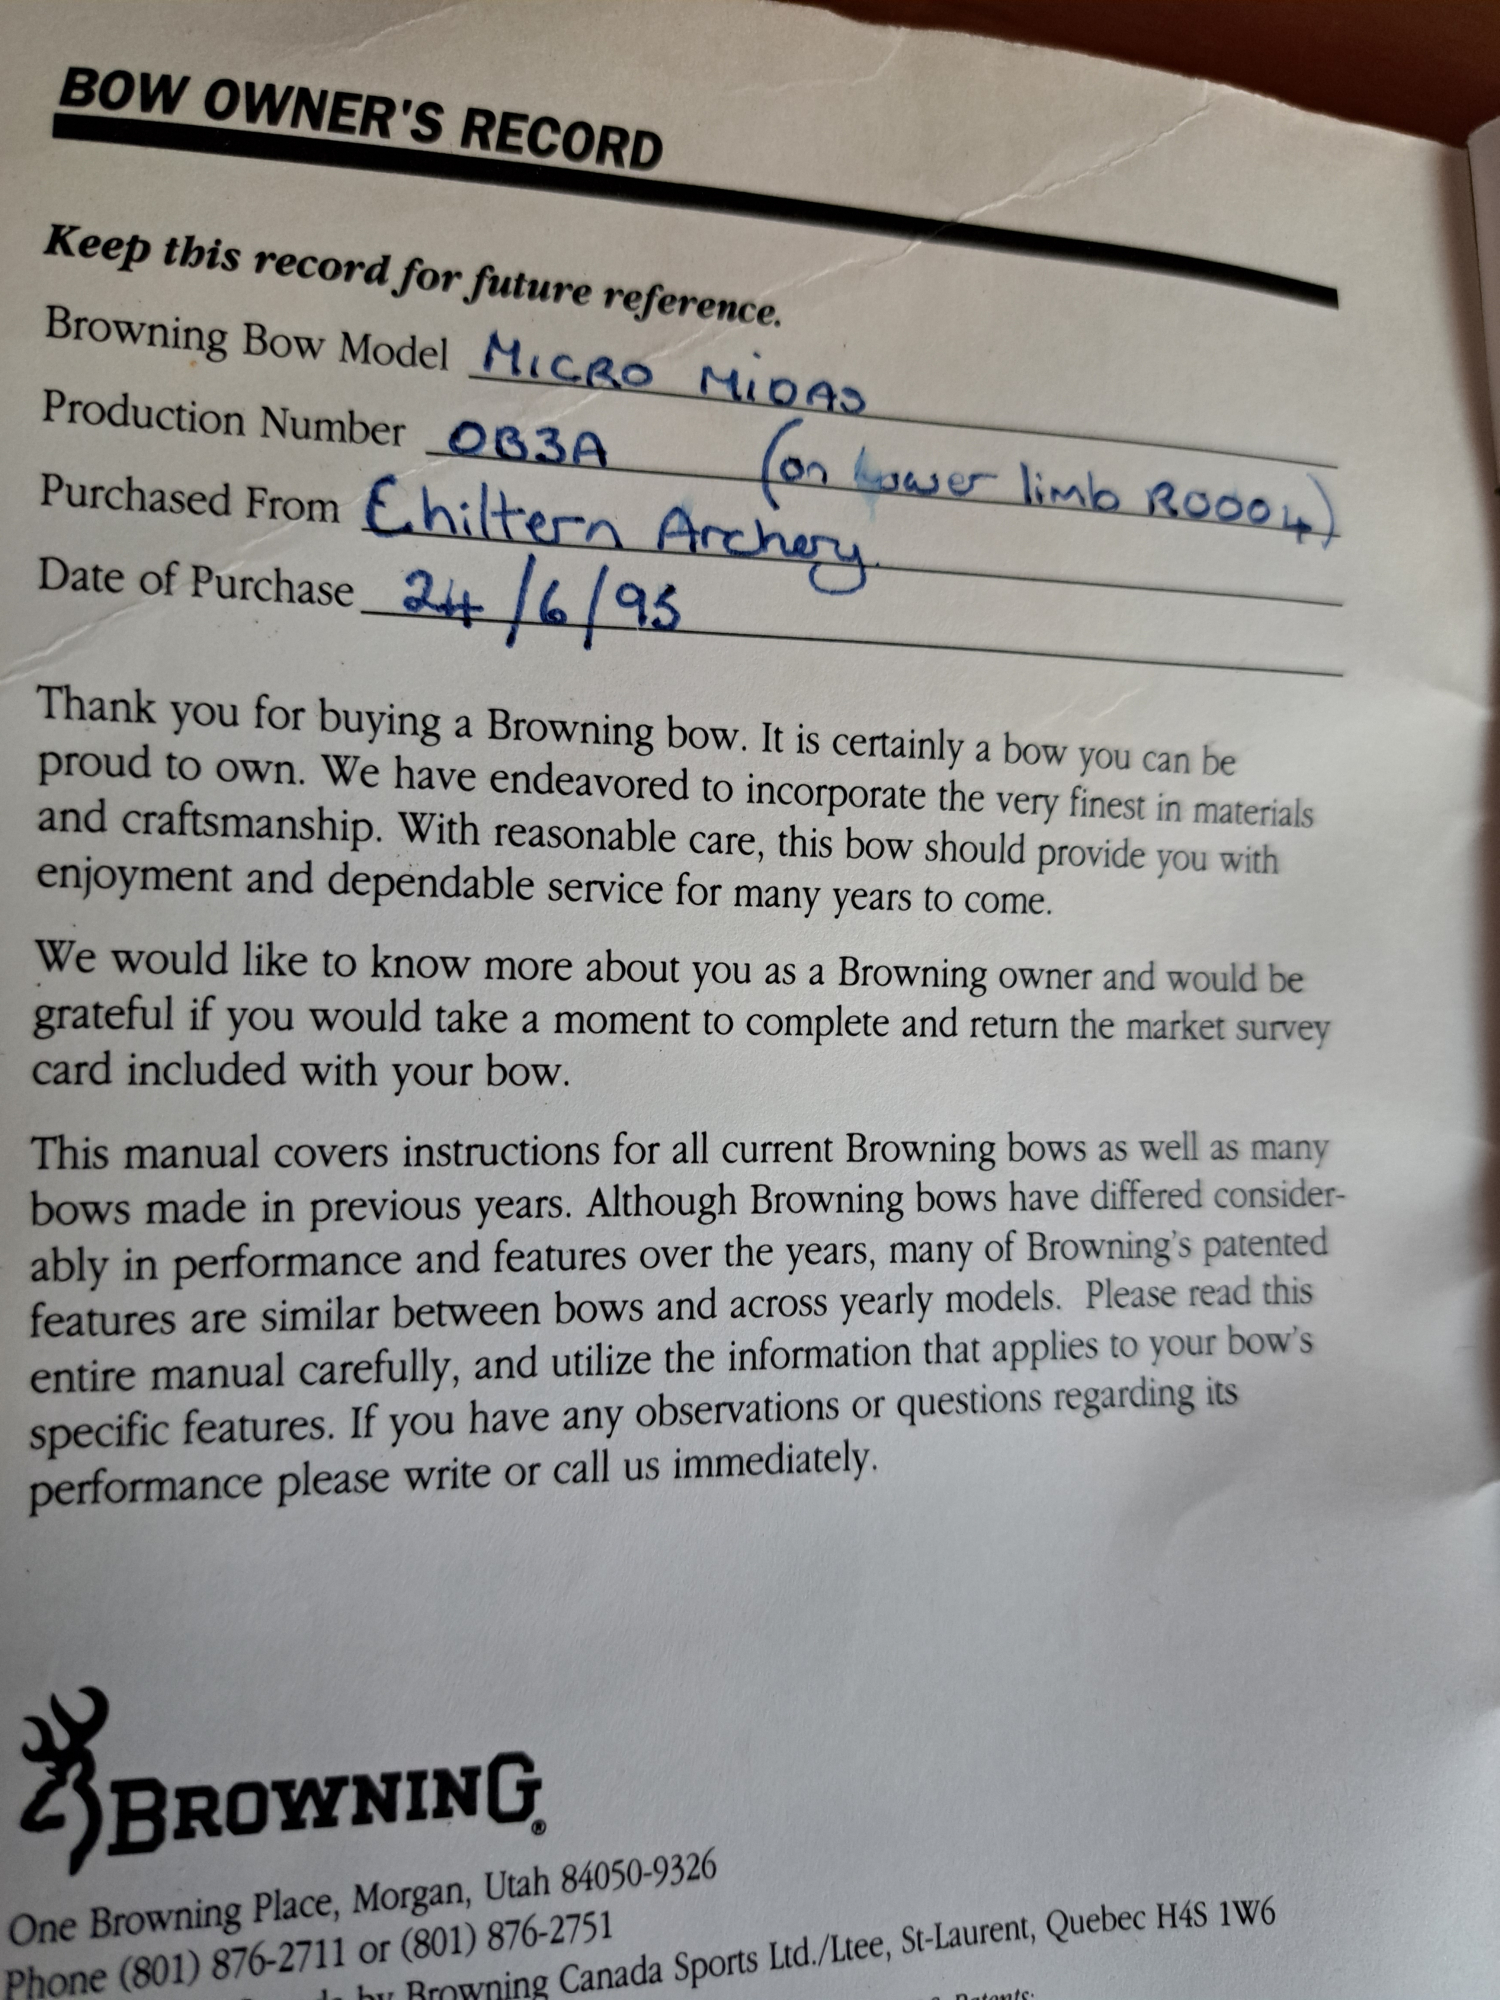 BOW OWNER'S RECORD
Keep this record for future reference.
Browning Bow Model MICRO MiDAS
Production Number OB3A (on Lower limb R0004)
Purchased From Chiltern Archery.
Date of Purchase 24/6/95
Thank you for buying a Browning bow. It is certainly a bow you can be
proud to own. We have endeavored to incorporate the very finest in materials
and craftsmanship. With reasonable care, this bow should provide you with
enjoyment and dependable service for many years to come.
We would like to know more about you as a Browning owner and would be
grateful if you would take a moment to complete and return the market survey
card included with your bow.
This manual covers instructions for all current Browning bows as well as many
bows made in previous years. Although Browning bows have differed consider-
ably in performance and features over the years, many of Browning's patented
features are similar between bows and across yearly models. Please read this
entire manual carefully, and utilize the information that applies to your bow's
specific features. If you have any observations or questions regarding its
performance please write or call us immediately.
BROWNING®
One Browning Place, Morgan, Utah 84050-9326
Phone (801) 876-2711 or (801) 876-2751
by Browning Canada Sports Ltd./Ltee, St-Laurent, Quebec H4S 1W6
Patents: